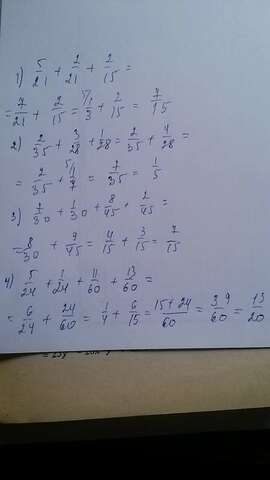 1) 5/21 + 2/21 + 2/15 =
= 7/21 + 2/15 = 1/3 + 2/15 = 7/15
2) 2/35 + 3/28 + 1/28 = 2/35 + 4/28 =
= 2/35 + 1/7 = 7/35 = 1/5
3) 7/30 + 1/30 + 8/45 + 1/45 =
= 8/30 + 9/45 = 4/15 + 3/15 = 7/15
4) 5/24 + 1/24 + 11/60 + 13/60 =
= 6/24 + 24/60 = 1/4 + 6/15 = 15+24/60 = 39/60 = 13/20